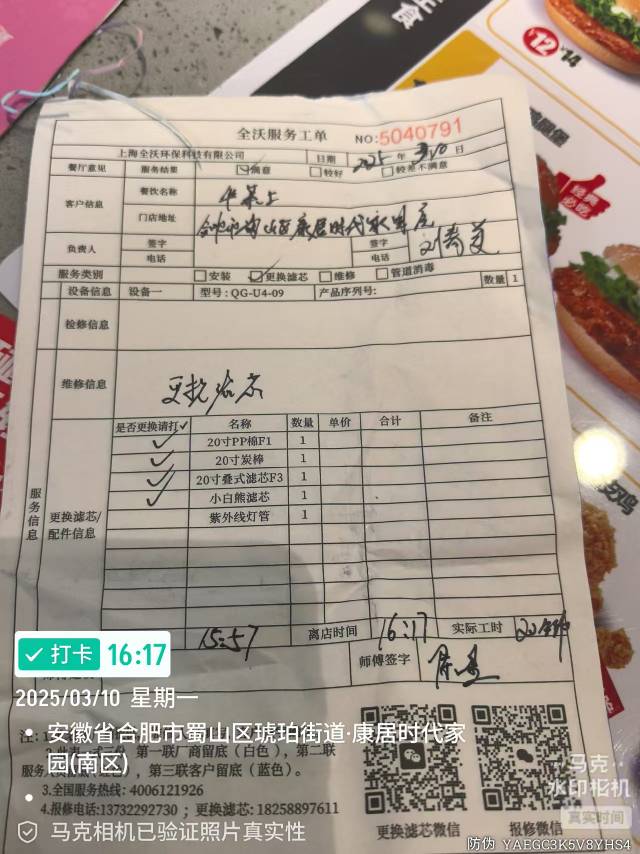 主食
12
14
全沃服务工单 NO:5040791
上海全沃环保科技有限公司 日期 2025 年 3月10日
餐厅意见 服务结果 满意 较好 较差不满意
客户信息 餐饮名称 华莱士
门店地址 合肥市蜀山区康居时代家园店
负责人 签字 电话 签字 电话
服务类别 安装 更换滤芯 维修 管道消毒
设备信息 设备一 型号:QG-U4-09 产品序列号: 数量 1
检修信息
维修信息 更换滤芯
服务信息
更换滤芯/配件信息
是否更换请打✓ 名称 数量 单价 合计 备注
✓ 20寸PP棉F1 1
✓ 20寸炭棒 1
✓ 20寸叠式滤芯F3 1
✓ 小白熊滤芯 1
紫外线灯管 1
15:57 离店时间 16:17 实际工时 20分钟
师傅签字
注:
第一联厂商留底(白色),第二联
服务人员 第三联客户留底(蓝色)。
3.全国服务热线:4006121926
4.报修电话:13732292730;更换滤芯:18258897611
更换滤芯微信 报修微信
打卡 16:17
2025/03/10 星期一
安徽省合肥市蜀山区琥珀街道·康居时代家
园(南区)
马克相机已验证照片真实性
马克
水印相机
真实时间
防伪 YAEGC3K5V8YHS4